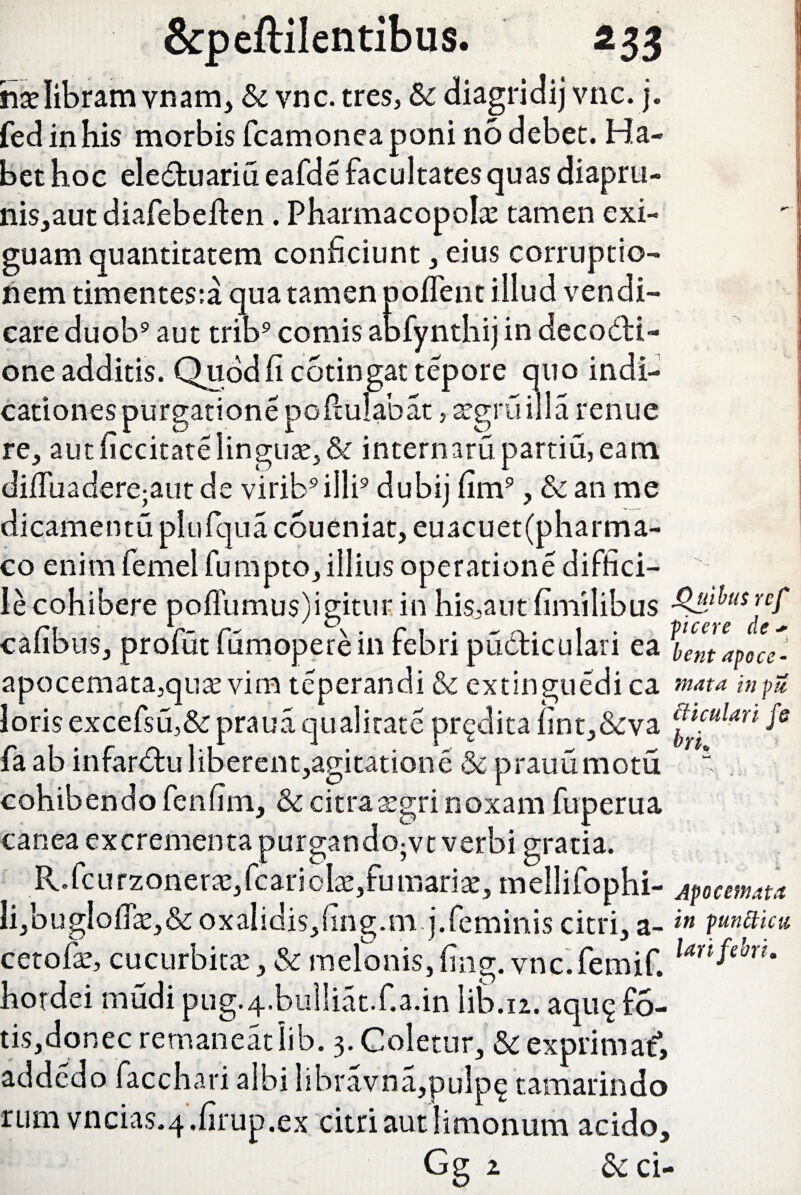 &peſtilentibus. 233
næ libram vnam, & vnc. tres, & diagridij vnc. j.
ſed in his morbis ſcamonea poni nō debet. Ha-
bet hoc electuariū eaſdē facultates quas diapru-
nis, aut diaſebeſten. Pharmacopolæ tamen exi-
guam quantitatem conficiunt, eius corruptio-
nem timentes: à qua tamen poſſent illud vendi-
care duobꝰ aut tribꝰ comis abſynthij in decocti-
one additis. Quòd ſi cōtingat tēpore quo indi-
cationes purgationē poſtulabāt, ægrū illā renue
re, aut ſiccitatē linguæ, & internarū partiū, eam
diſſuadere; aut de viribꝰ illiꝰ dubij ſimꝰ, & an me
dicamentū pluſquā cōueniat, euacuet (pharma-
co enim ſemel ſumpto, illius operationē diffici-
lè cohibere poſſumus) igitur in his, aut ſimilibus
caſibus, proſūt ſūmoperè in febri pūcticulari ea
apocemata, quæ vim tēperandi & extinguēdi ca
loris exceſsū, & prauā qualitatē prędita ſint, & va
ſa ab infarctu liberent, agitationē & prauū motū
cohibendo ſenſim, & citra ægri noxam ſuperua
canea excrementa purgando; vt verbi gratia.
Quibus reſ
picere de-
bent apoce-
mata in pū
cticulari fe
bri.
R. ſcurzoneræ, ſcariolæ, fumariæ, melliſophi-
li, bugloſſæ, & oxalidis, ſing. m. j. ſeminis citri, a-
cetoſæ, cucurbitæ, & melonis, ſing. vnc. ſemiſ.
hordei mūdi pug. 4. bulliāt. ſ. a. in lib. 12. aquę fō-
tis, donec remaneāt lib. 3. Coletur, & exprimat',
addēdo ſacchari albi librā vnā, pulpę tamarindo
rum vncias. 4. ſirup. ex citri aut limonum acido,
Apocemata
in puncticu
lari febri.
Gg 2 & ci-